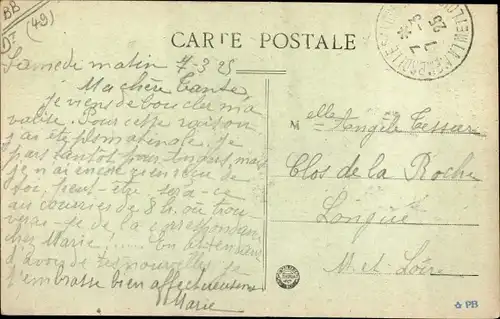 BB
(49)
CARTE POSTALE
Samedi matin 7-3-25
Ma chère Tante,
je viens de boucler ma
valise. Pour cette raison
j'ai été plus matinale. Je
pars tantôt pour mais
je n'ai encore rien reçu de
toi, peut-être sera-ce
au courrier de 8 h. où trou
verai-je de la correspondance
chez Marie ...... En attendant
d'avoir de tes nouvelles je
t'embrasse bien affectueusement
Marie
Melle Angèle Tessier
Clos de la Roche
Longué
M-et-Loire
PB